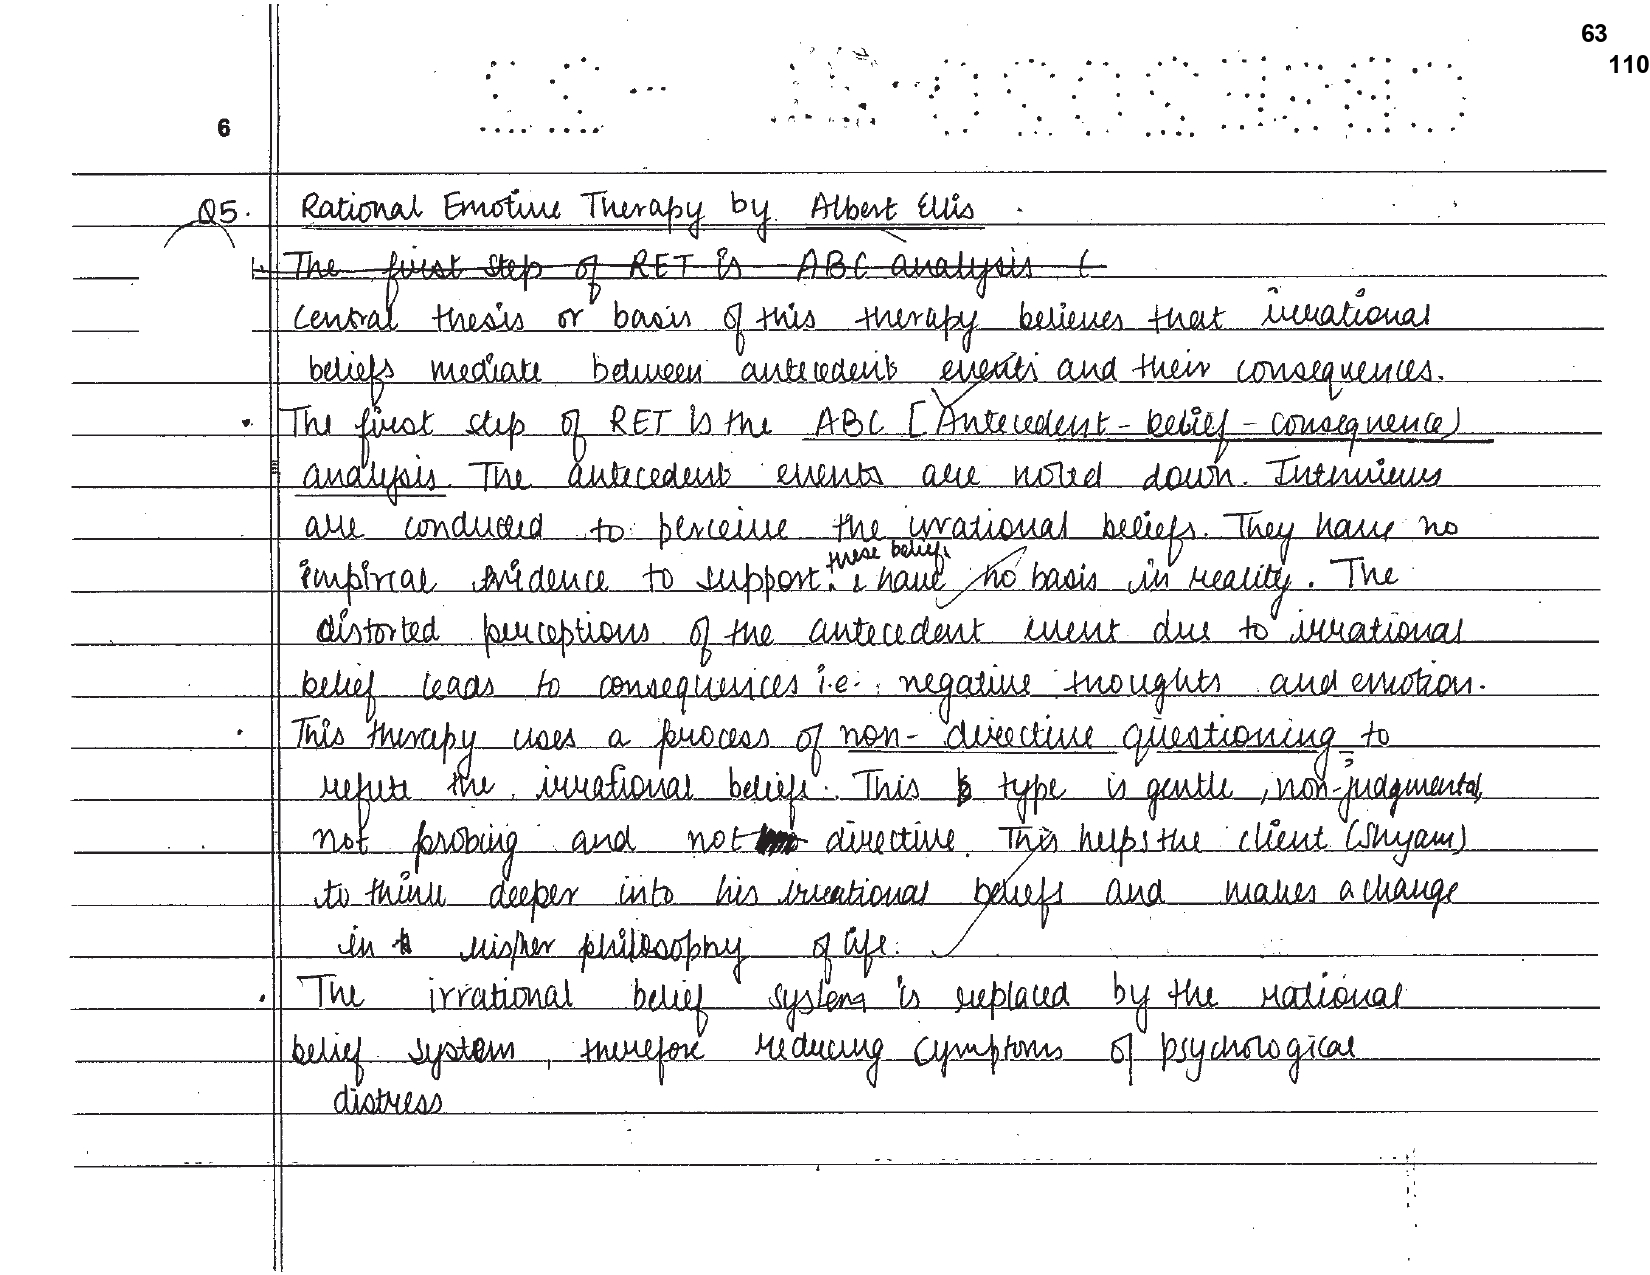 63
110
6
Q5. Rational Emotive Therapy by Albert Ellis
The first step of RET is ABC analysis (
Central thesis or basis of this therapy believes that irrational
beliefs mediate between antecedent events and their consequences.
• The first step of RET is the ABC [Antecedent - belief - consequence)
analysis. The antecedent events are noted down. Interviews
are conducted to perceive the irrational beliefs. They have no
empirical evidence to support these beliefs & have no basis in reality. The
distorted perceptions of the antecedent event due to irrational
belief leads to consequences i.e. negative thoughts and emotion.
• This therapy uses a process of non-directive questioning to
refute the irrational beliefs. This type is gentle, non-judgmental,
not probing and not directive. This helps the client (Shyam)
to think deeper into his irrational beliefs and makes a change
in his/her philosophy of life.
• The irrational belief system is replaced by the rational
belief system, therefore reducing symptoms of psychological
distress